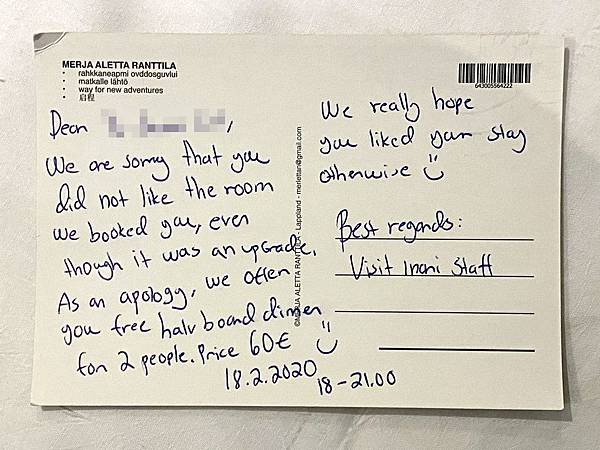 MERJA ALETTA RANTTILA
• rahkkaneapmi ovddosguvlui
• matkalle lähtö
• way for new adventures
• 启程
643005564222
Dear ,
We are sorry that you
did not like the room
we booked you, even
though it was an upgrade.
As an apology, we offer
you free halv board dinner
for 2 people. Price 60€
18.2.2020 18-21.00
©MERJA ALETTA RANTTILA - Lappland - merlettan@gmail.com
We really hope
you liked your stay
otherwise
Best regards:
Visit Inari Staff